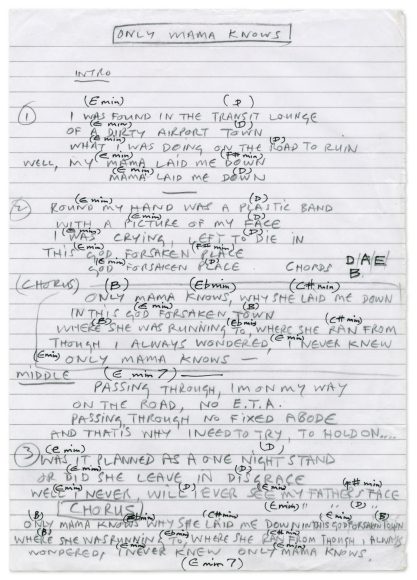 ONLY MAMA KNOWS
INTRO
(E min) (D)
① I WAS FOUND IN THE TRANSIT LOUNGE
(E min) (D)
OF A DIRTY AIRPORT TOWN
(E min) (D)
WHAT I WAS DOING ON THE ROAD TO RUIN
(E min) (F# min)
WELL, MY MAMA LAID ME DOWN
(E min) (D)
MAMA LAID ME DOWN
(E min) (D)
② ROUND MY HAND WAS A PLASTIC BAND
(E min) (D)
WITH A PICTURE OF MY FACE
(E min) (D)
I WAS CRYING, LEFT TO DIE IN
(E min) (F# min)
THIS GOD FORSAKEN PLACE
(E min) (D)
GOD FORSAKEN PLACE. CHORDS D/A/E/
B.
(CHORUS) (B) (Eb min) (C# min)
ONLY MAMA KNOWS, WHY SHE LAID ME DOWN
(E min) (B)
IN THIS GOD FORSAKEN TOWN
(B) (Eb min) (C# min)
WHERE SHE WAS RUNNING TO, WHERE SHE RAN FROM
(E min) (B)
THOUGH I ALWAYS WONDERED, I NEVER KNEW
(E min) ONLY MAMA KNOWS —
MIDDLE (E min 7)
PASSING THROUGH, IM ON MY WAY
ON THE ROAD, NO E.T.A.
PASSING THROUGH NO FIXED ABODE
AND THAT'S WHY I NEED TO TRY, TO HOLD ON....
(E min) (D)
③ WAS IT PLANNED AS A ONE NIGHT STAND
(E min) (D)
OR DID SHE LEAVE IN DISGRACE
(E min) (D) (F# min)
WELL I NEVER, WILL I EVER SEE MY FATHERS FACE
CHORUS (E min) (D) (B)
(B) (Eb min) (C# min)
ONLY MAMA KNOWS WHY SHE LAID ME DOWN IN THIS GOD FORSAKEN TOWN
(B)
WHERE SHE WAS RUNNING TO, WHERE SHE RAN FROM THOUGH I ALWAYS
WONDERED, I NEVER KNEW ONLY MAMA KNOWS.
(E min 7)